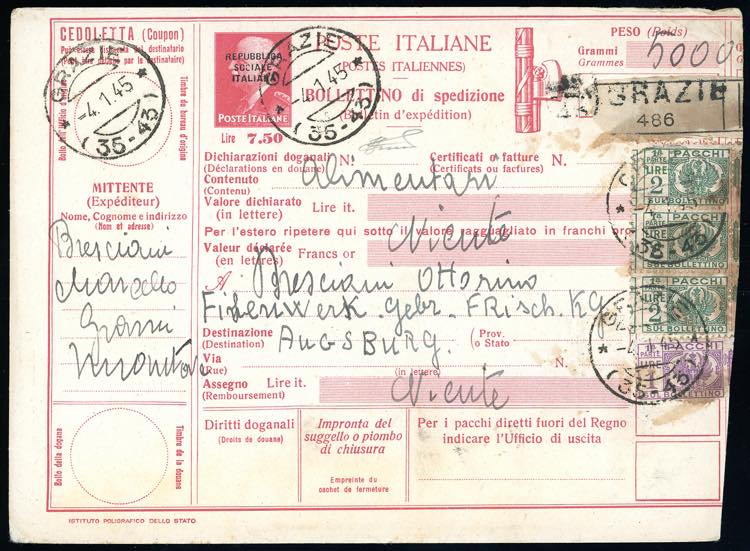 CEDOLETTA (Coupon)
Può essere distaccata dal destinatario
(Peut être détaché par le destinataire)
Bollo dell'Ufficio d'origine
Timbre du bureau d'origine
GRAZIE
-4.1.45
(35-43)
MITTENTE
(Expéditeur)
Nome, Cognome e indirizzo
(Nom et adresse)
Bresciani
Marcello
Grazie
Mantova
Bollo della dogana
Timbre de la douane
REPUBBLICA
SOCIALE
ITALIANA
POSTE ITALIANE
Lire 7.50
GRAZIE
-4.1.45
(35-43)
POSTE ITALIANE
(POSTES ITALIENNES)
BOLLETTINO di spedizione
(Bulletin d'expédition)
PESO (Poids)
Grammi
Grammes
5000
GRAZIE
486
Dichiarazioni doganali N.
(Déclarations en douane)
Certificati o fatture N.
(Certificats ou factures)
Contenuto
(Contenu)
Alimentari
Valore dichiarato
(in lettere) Lire it.
Per l'estero ripetere qui sotto il valore ragguagliato in franchi oro
Niente
Valeur déclarée
(en lettres) Francs or
A Bresciani Ottorino
(À)
Fibenwerk. Gebr. Frisch. KG
Destinazione
(Destination)
AUGSBURG.
(Prov.
o Stato
Via N.
(Rue) (in lettere)
Assegno Lire it.
(Remboursement)
Niente
Diritti doganali
(Droits de douane)
Impronta del
suggello o piombo
di chiusura
Empreinte du
cachet de fermeture
Per i pacchi diretti fuori del Regno
indicare l'Ufficio di uscita
1ª PARTE PACCHI
LIRE
2
SUL BOLLETTINO
1ª PARTE PACCHI
LIRE
SUL BOLLETTINO
1ª PARTE PACCHI
LIRE
2
SUL BOLLETTINO
PACCHI
PARTE
LIRE
1
SUL BOLLETTINO
35-43
-4.1.
(35-43)
ISTITUTO POLIGRAFICO DELLO STATO